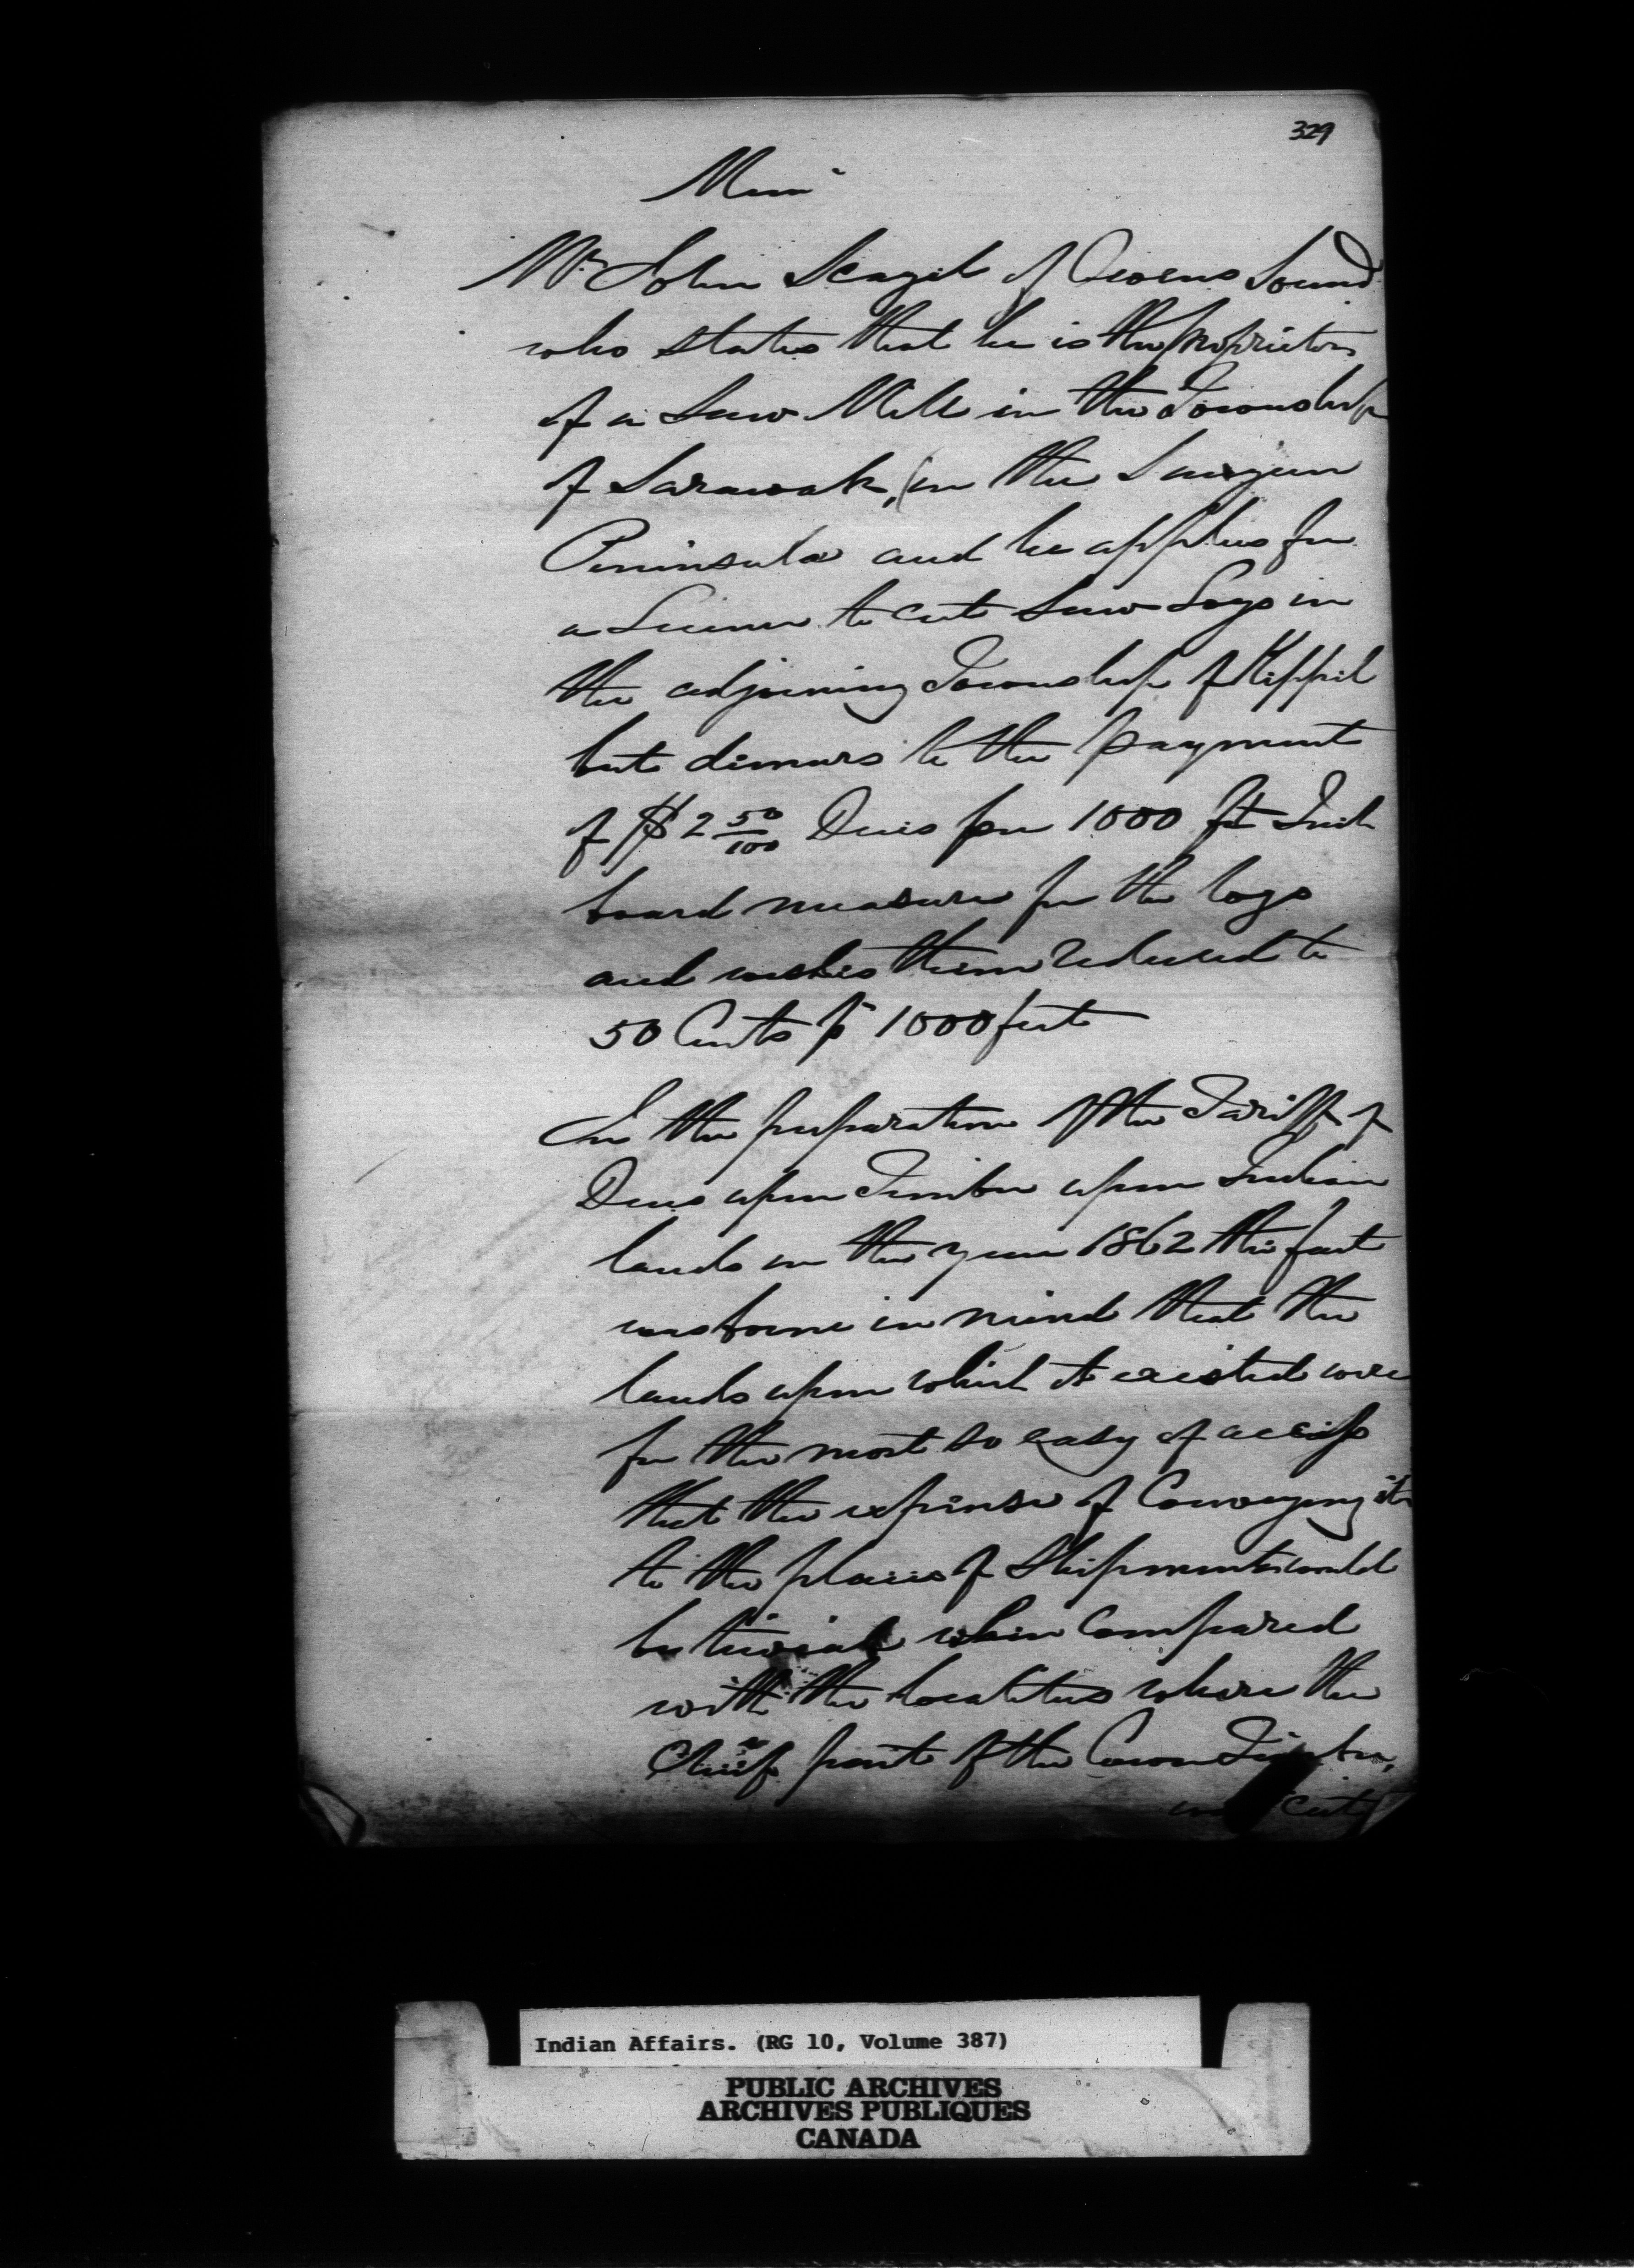 329
Mem
Mr John Scagel of Owens Sound
who states that he is the proprietor
of a Saw Mill in the Township
of Sarawak, in the Saugeen
Peninsula and he applies for
a License to cut Saw Logs in
the adjoining Township of Keppel
but demurs to the payment
of $2 50/100 Dues per 1000 ft Inch
board measure for the logs
and wishes them reduced to
50 Cents pr 1000 feet
In the preparation of the Tariff of
Dues upon Timber upon Indian
lands in the year 1862 the fact
was borne in mind that the
lands upon which it existed were
for the most so easy of access
that the expense of Conveying it
to the places of Shipment would
be trivial when Compared
with the localities where the
Chief part of the Crown Timber,
cut
Indian Affairs. (RG 10, Volume 387)
PUBLIC ARCHIVES
ARCHIVES PUBLIQUES
CANADA